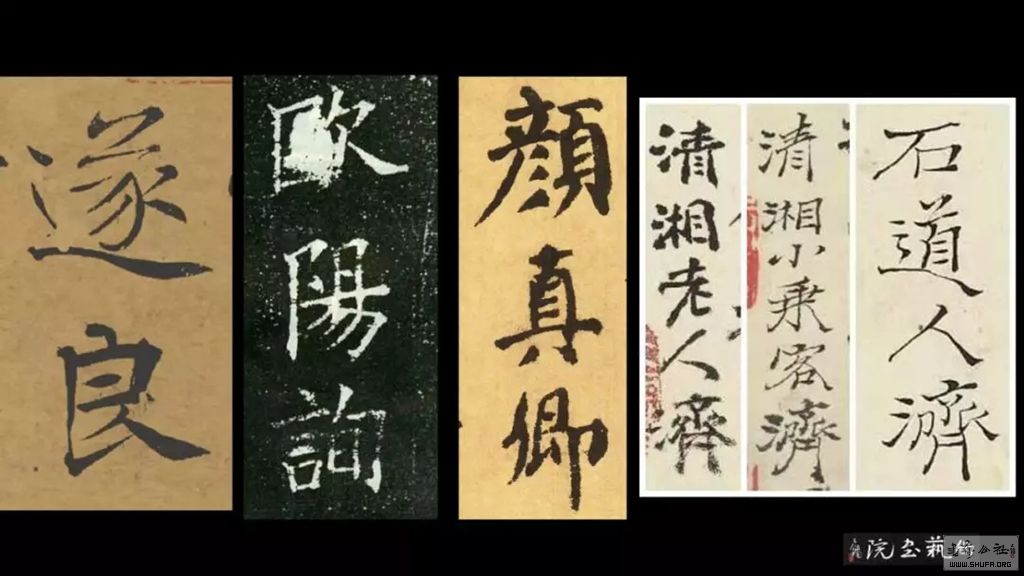 遂良
歐陽詢
顔真卿
清湘老人齊
清湘小乘客濟
石道人濟
书法公社
WWW.SHUFA.ORG